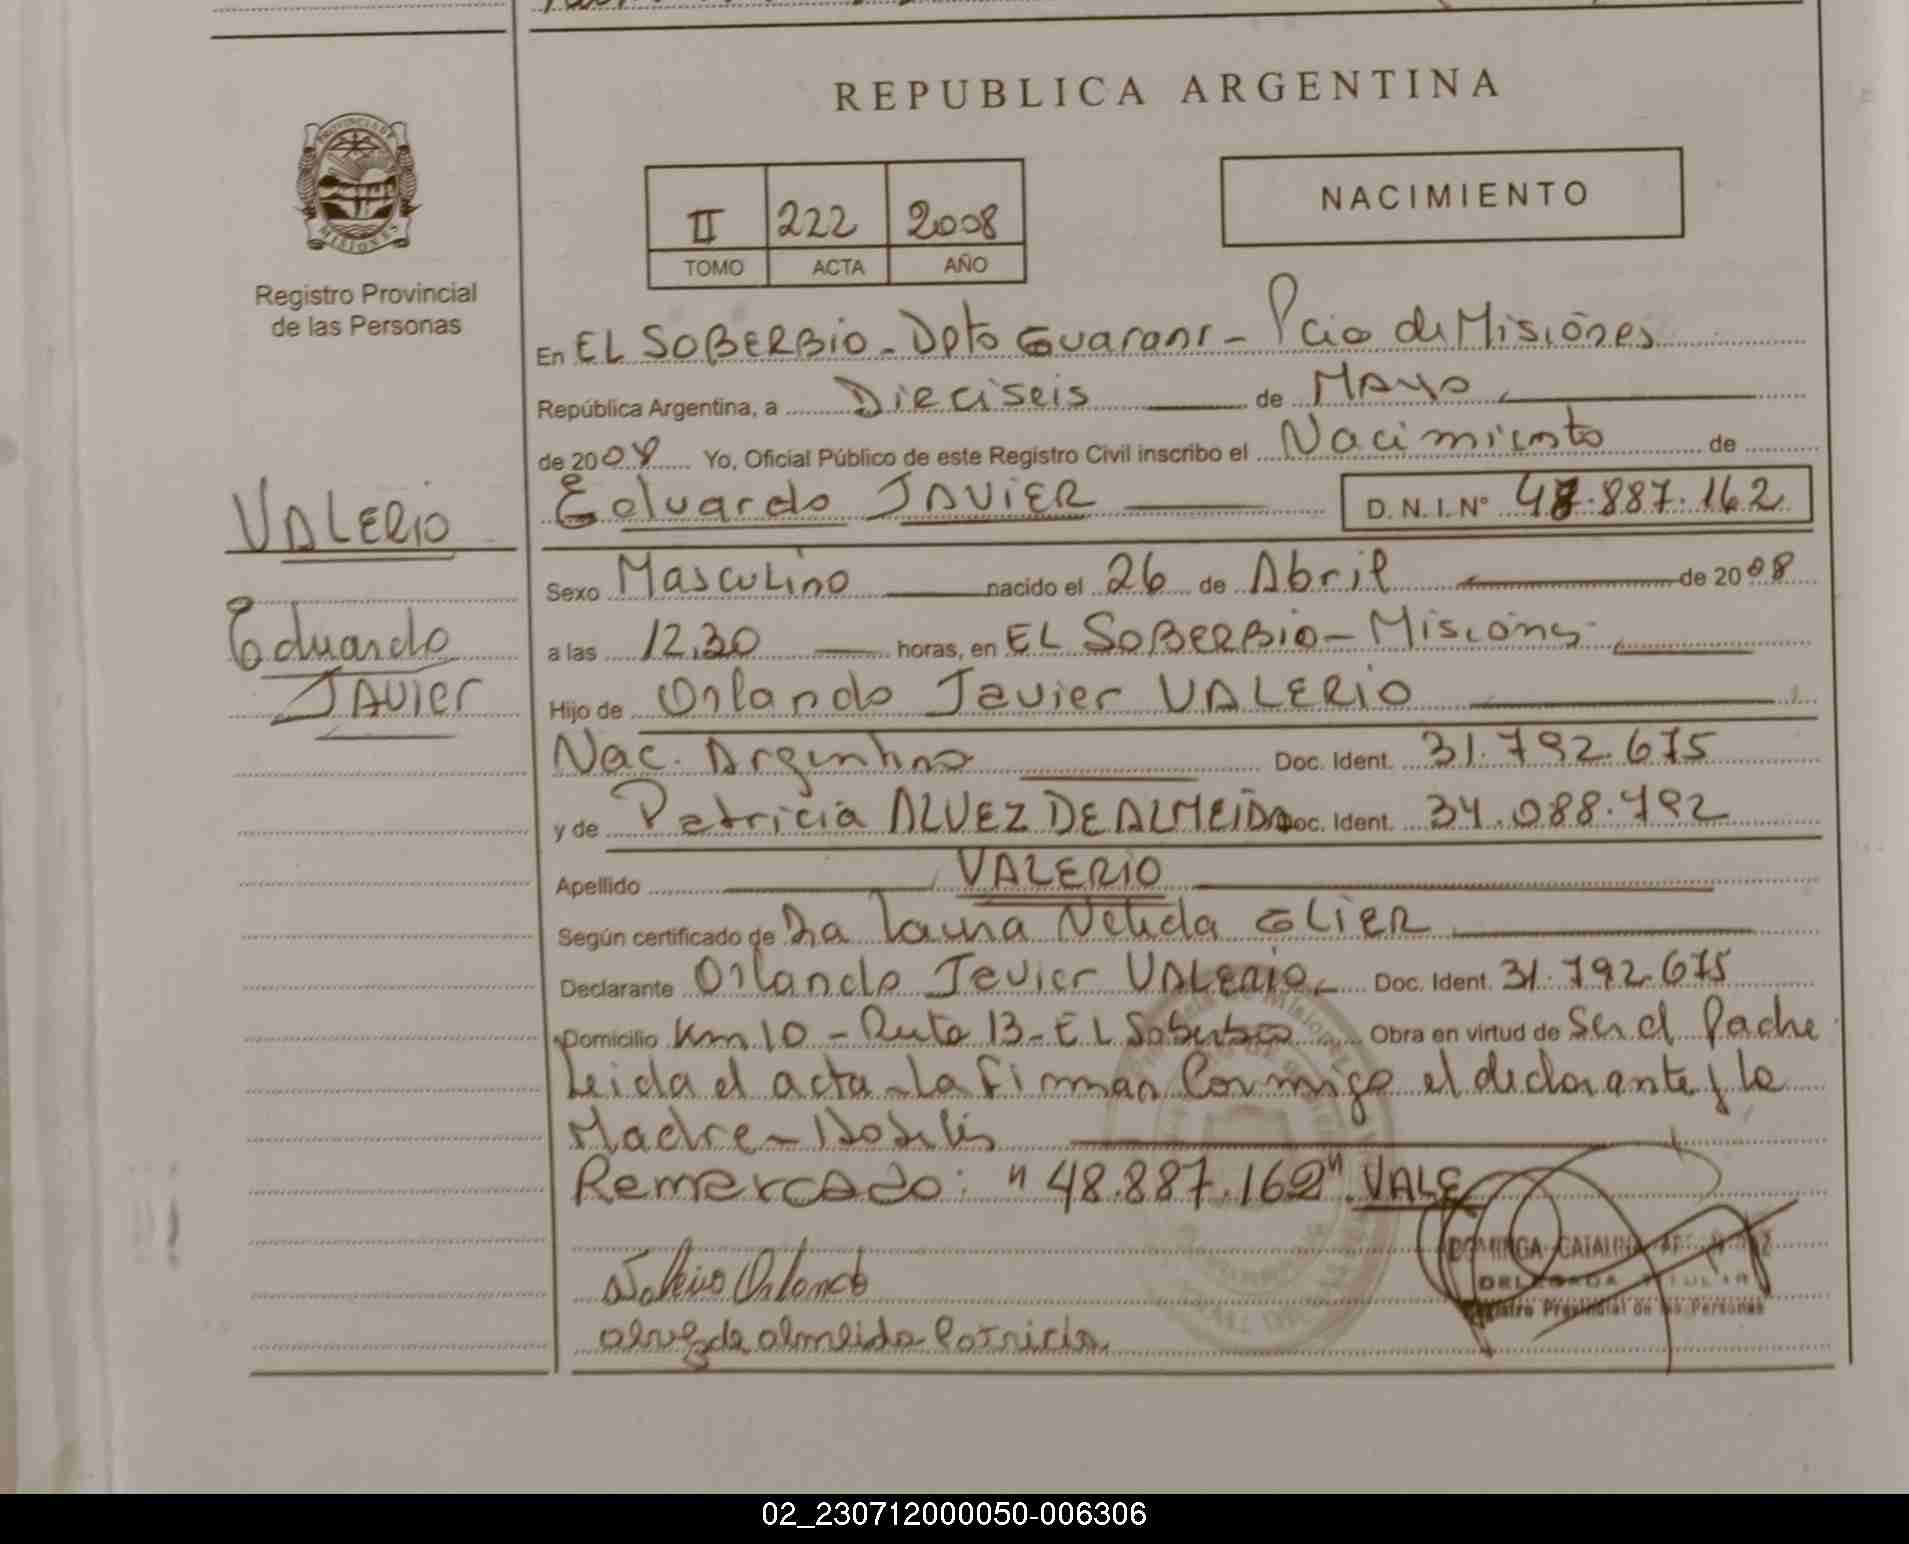 REPUBLICA ARGENTINA
PROVINCIA DE MISIONES
Registro Provincial
de las Personas
II 222 2008
TOMO ACTA AÑO
NACIMIENTO
En EL SOBERBIO - Dpto Guarani - Pcia de Misiones
República Argentina, a Dieciseis de MAYO
de 2008 Yo, Oficial Público de este Registro Civil inscribo el Nacimiento de
Eduardo JAVIER D.N.I.Nº 48.887.162
VALERIO
Eduardo
JAVIER
Sexo Masculino nacido el 26 de Abril de 2008
a las 12,30 horas, en EL SOBERBIO - Misiones
Hijo de Orlando Javier VALERIO
Nac. Argentino Doc. Ident. 31.792.675
y de Patricia ALVEZ DE ALMEIDA Doc. Ident. 34.088.792
Apellido VALERIO
Según certificado de Dra Laura Nelida GLIER
Declarante Orlando Javier VALERIO Doc. Ident. 31.792.675
Domicilio Km 10 - Ruta 13 - EL Soberbio Obra en virtud de Ser el Padre
Leida el acta - La firman Conmigo el declarante y la
Madre -
Remarcado: "48.887.162" VALE
Valerio Orlando
alvez de almeida Patricia
DOMINGA CATALINA
DELEGADA TITULAR
Registro Provincial de las Personas
02_230712000050-006306